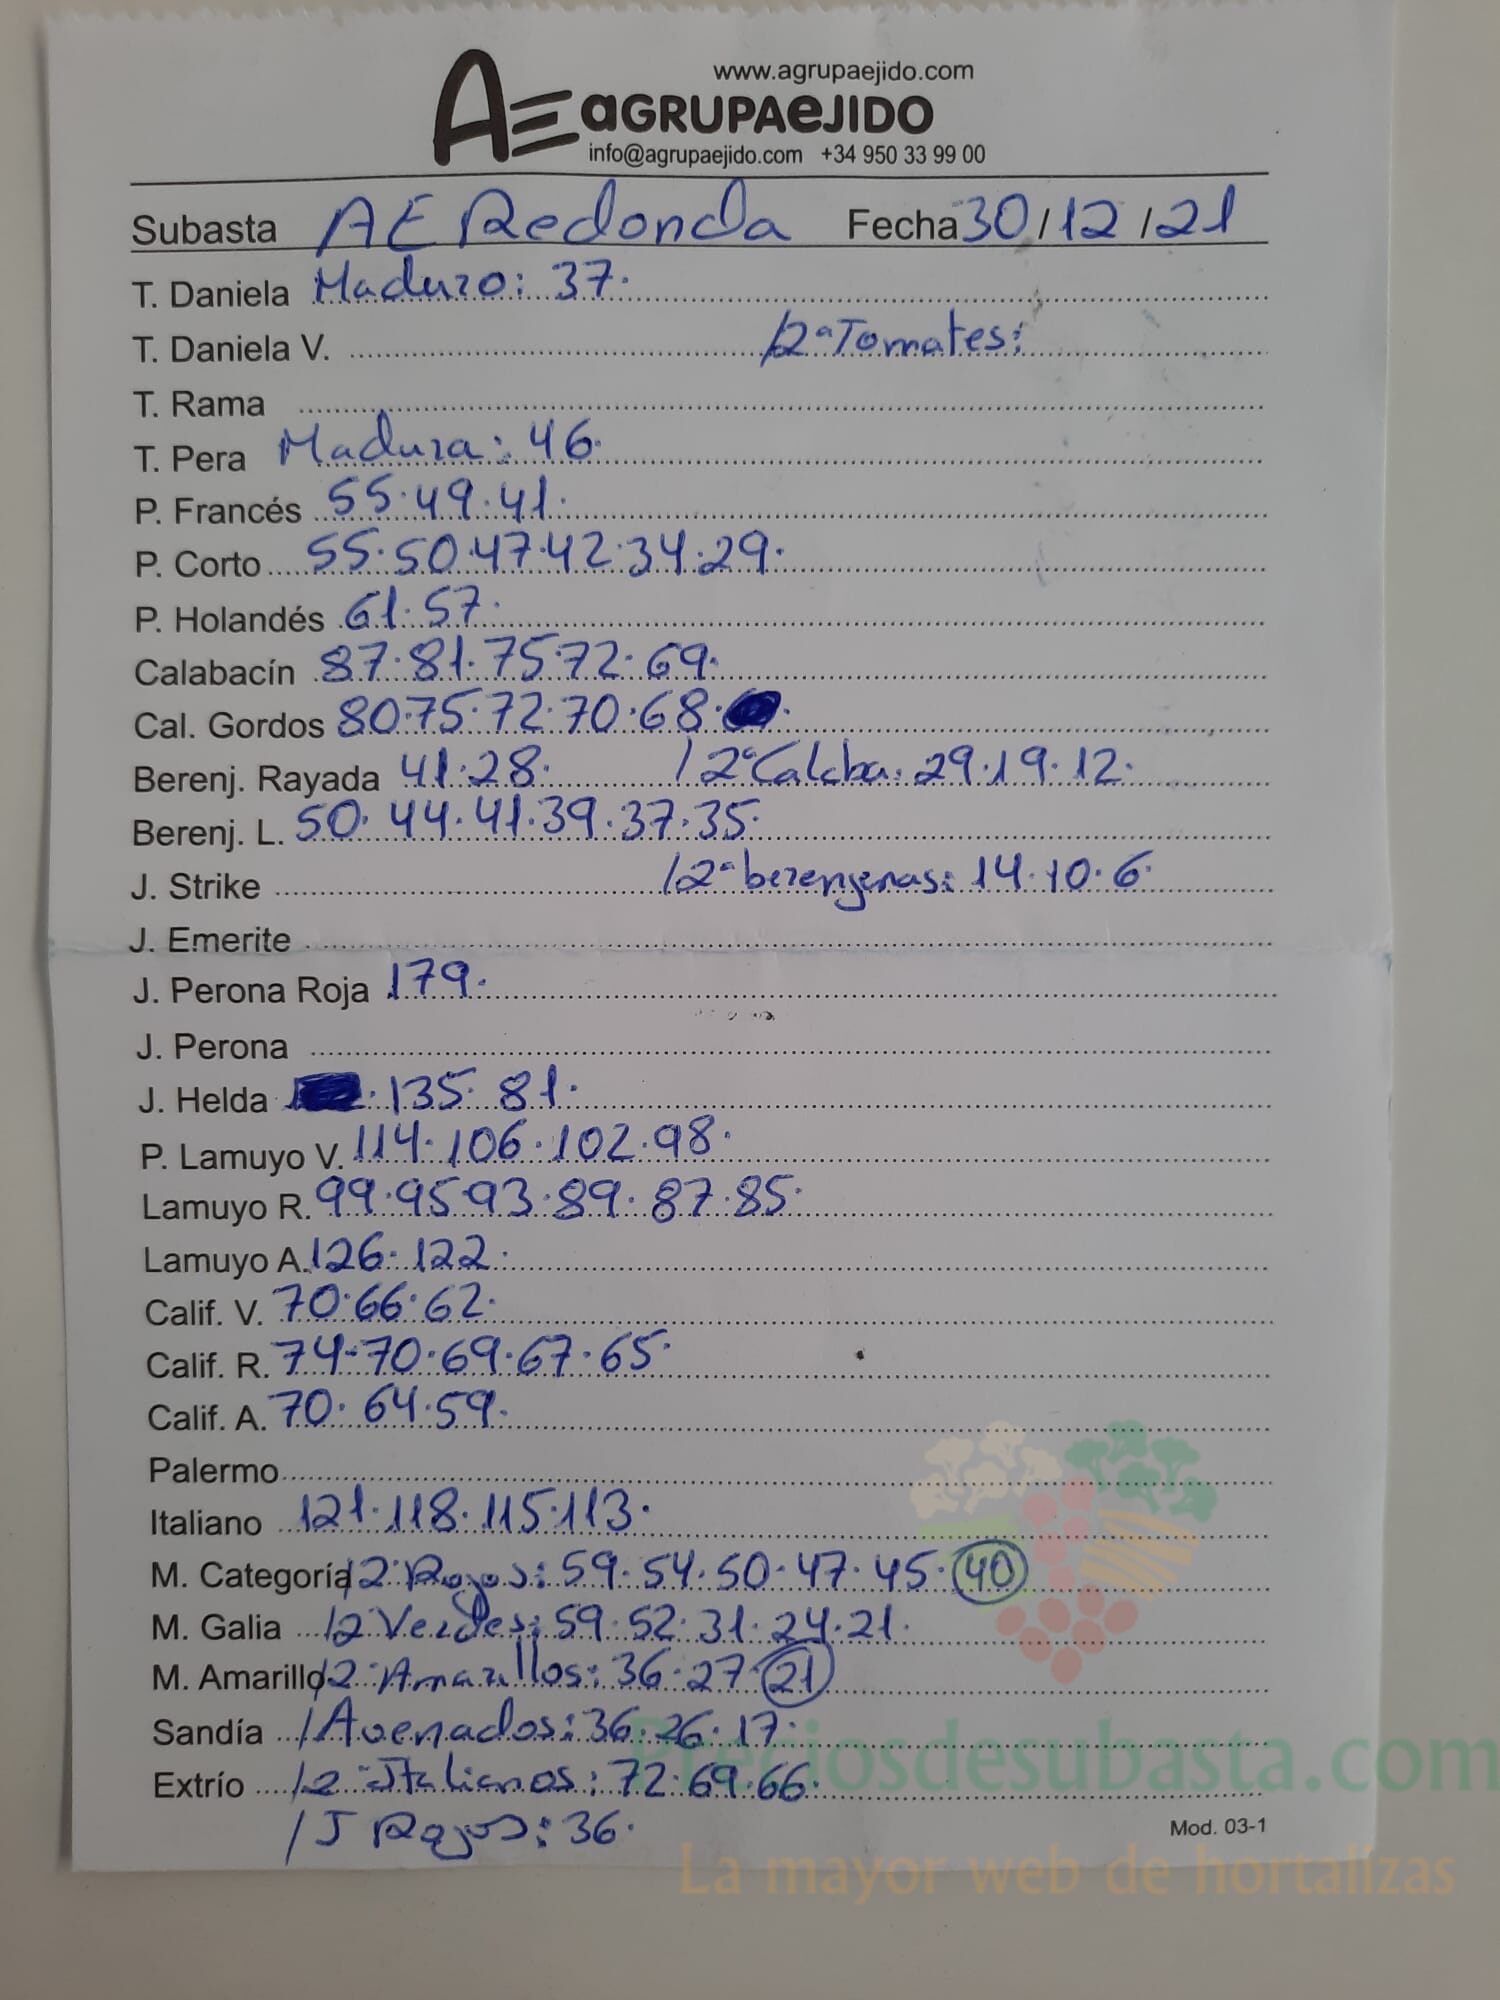 www.agrupaejido.com
AE aGRUPAeJIDO
info@agrupaejido.com +34 950 33 99 00
Subasta AE Redonda Fecha 30/12/21
T. Daniela Maduro: 37.
T. Daniela V. /2ª Tomates:
T. Rama
T. Pera Madura: 46.
P. Francés 55.49.41.
P. Corto 55.50.47.42.34.29.
P. Holandés 61.57.
Calabacín 87.81.75.72.69.
Cal. Gordos 80.75.72.70.68.
Berenj. Rayada 41.28. /2ª Calaba: 29.19.12.
Berenj. L. 50.44.41.39.37.35.
J. Strike /2ª berenjenas: 14.10.6.
J. Emerite
J. Perona Roja 179.
J. Perona
J. Helda 135.81.
P. Lamuyo V. 114.106.102.98.
Lamuyo R. 99.95.93.89.87.85.
Lamuyo A. 126.122.
Calif. V. 70.66.62.
Calif. R. 74-70.69.67.65.
Calif. A. 70.64.59.
Palermo
Italiano 121.118.115.113.
M. Categoría /2ª Rojos: 59.54.50.47.45.40
M. Galia /2 Verdes: 59.52.31.24.21.
M. Amarillo /2ª Amarillos: 36.27.21
Sandía /Avenados: 36.26.17.
Extrío /2ª Italianos: 72.69.66.
/J Rojos: 36.
Mod. 03-1
Preciosdesubasta.com
La mayor web de hortalizas